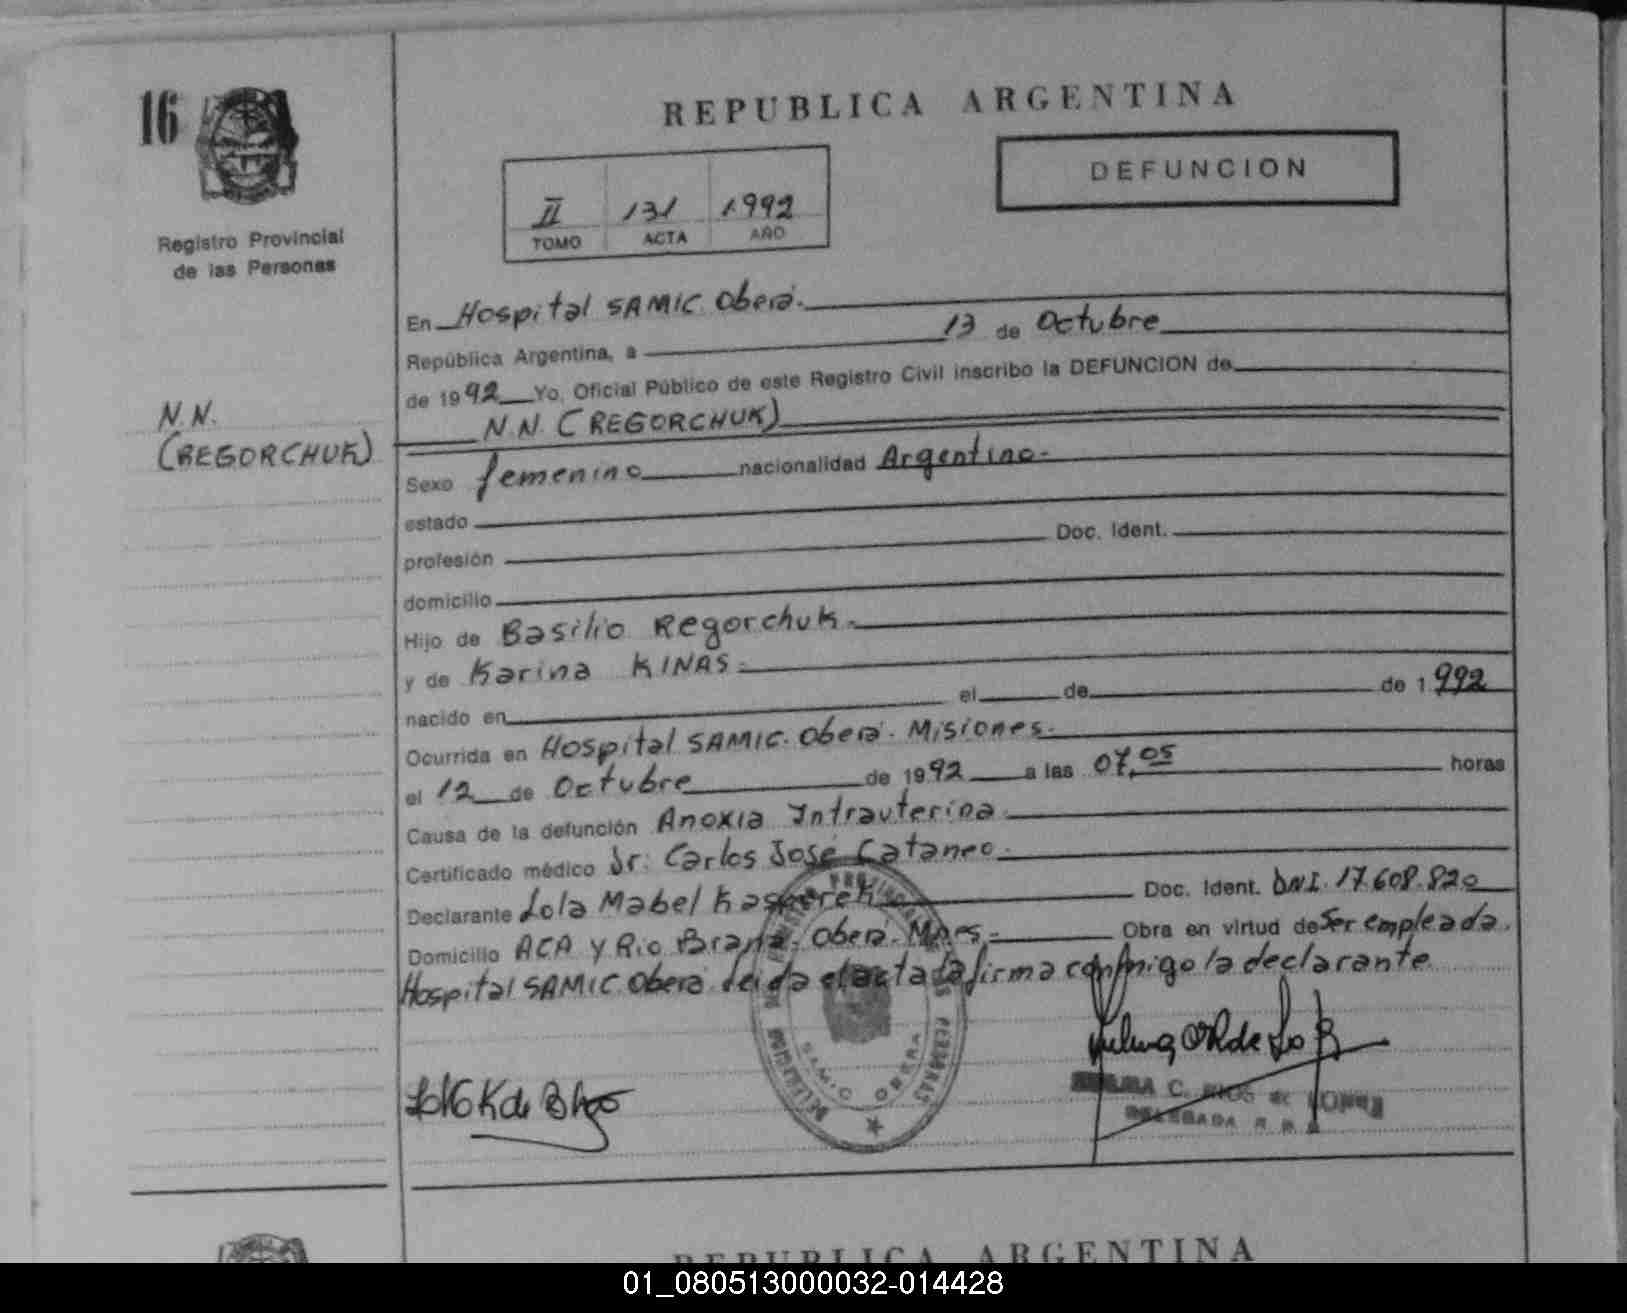 16
REPUBLICA ARGENTINA
DEFUNCION
II 131 1992
TOMO ACTA AÑO
Registro Provincial
de las Personas
En Hospital SAMIC. Oberá.
República Argentina, a 13 de Octubre
de 1992 Yo, Oficial Público de este Registro Civil inscribo la DEFUNCION de
N.N. (REGORCHUK)
N.N.
(REGORCHUK)
Sexo femenino nacionalidad Argentino.
estado
profesión Doc. Ident.
domicilio
Hijo de Basilio Regorchuk.
y de Karina KINAS.
nacido en el de de 1992
Ocurrida en Hospital SAMIC. Oberá. Misiones.
el 12 de Octubre de 1992 a las 07,05 horas
Causa de la defunción Anoxia Intrauterina
Certificado médico Dr. Carlos José Cataneo.
Declarante Lola Mabel Doc. Ident. DNI. 17.608.820
Domicilio ACA y Rio Oberá. Mnes. Obra en virtud de Ser empleada.
Hospital SAMIC. Oberá leida el acta la firma conmigo la declarante
SAMIC OBERA
C. RIOS de
DELEGADA R. P.
REPUBLICA ARGENTINA
01_080513000032-014428